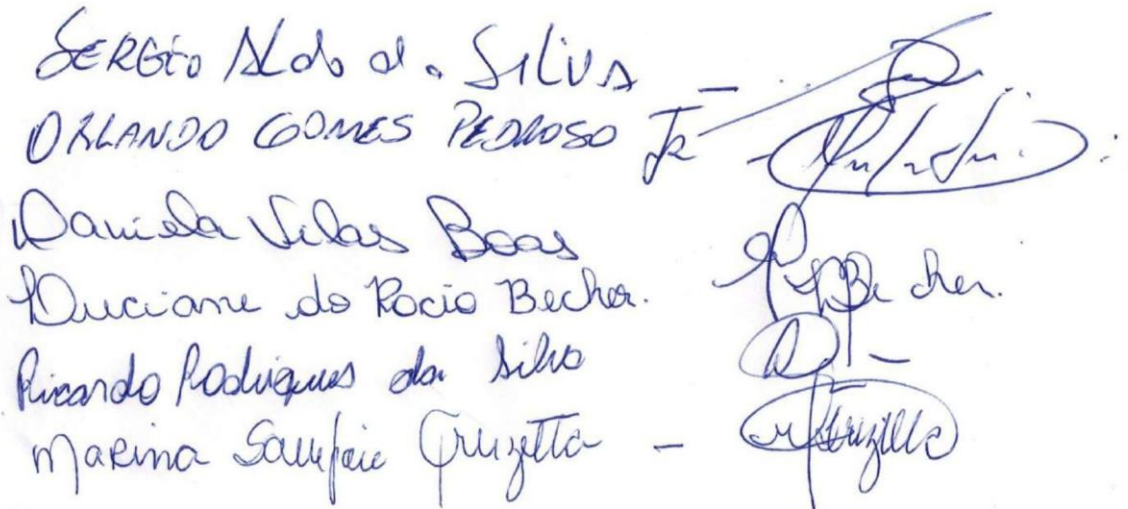 SERGio Aldo da Silva -
ORLANDO GOMES PEDROSO JR -
Daniela Vilas Boas
Luciane do Rocio Becher. Becher.
Ricardo Rodrigues da Silva -
Marina Sampaio Cruzetta - Cruzetta